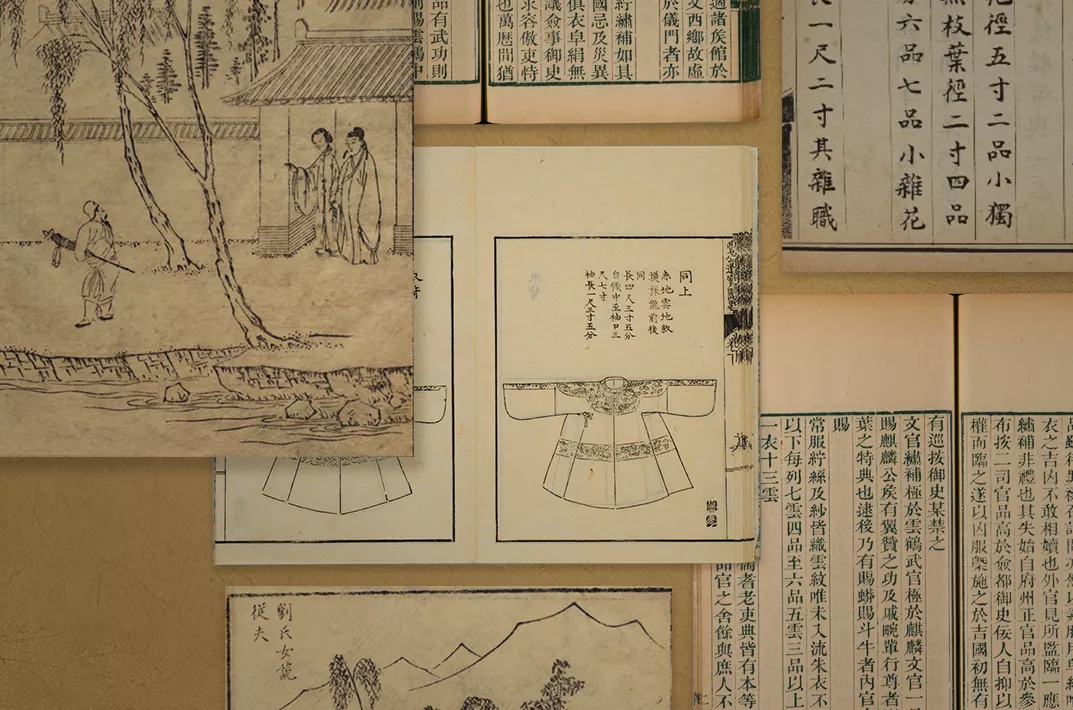 適諸侯館於
文西鄉故虛
於儀門者亦
行繡補如其
國忌及災異
俱衣阜絹無
議僉事御史
求容倣吏特
也萬曆間猶
品有武功則
賜雲鶴中
徑五寸二品小獨
枝葉徑二寸四品
六品七品小雜花
長一尺二寸其雜職
同上
赤地雲地紋
模樣龍前後
同
長四尺三寸五分
自領中至袖口三
尺七寸
袖長一尺三寸五分
衣之吉凶不敢相嬻也外官見所監臨一應
繡補非禮也其失始自府州正官品高於參
布按二司官品高於僉都御史佞人自抑以
權而臨之遂以凶服槩施之於吉國初無有
有巡按御史某禁之
文官繡補極於雲鶴武官極於麒麟文官一
賜麒麟公矦有翼贊之功及戚畹單行尊者
葉之特典也逮後乃有賜蟒賜斗牛者內官
賜
常服紵絲及紗皆織雲紋唯未入流朱衣不
以下每列七雲四品至六品五雲三品以上
一衣十三雲
儒者老吏典皆有本等
官之舍餘與庶人不
劉氏女
從夫